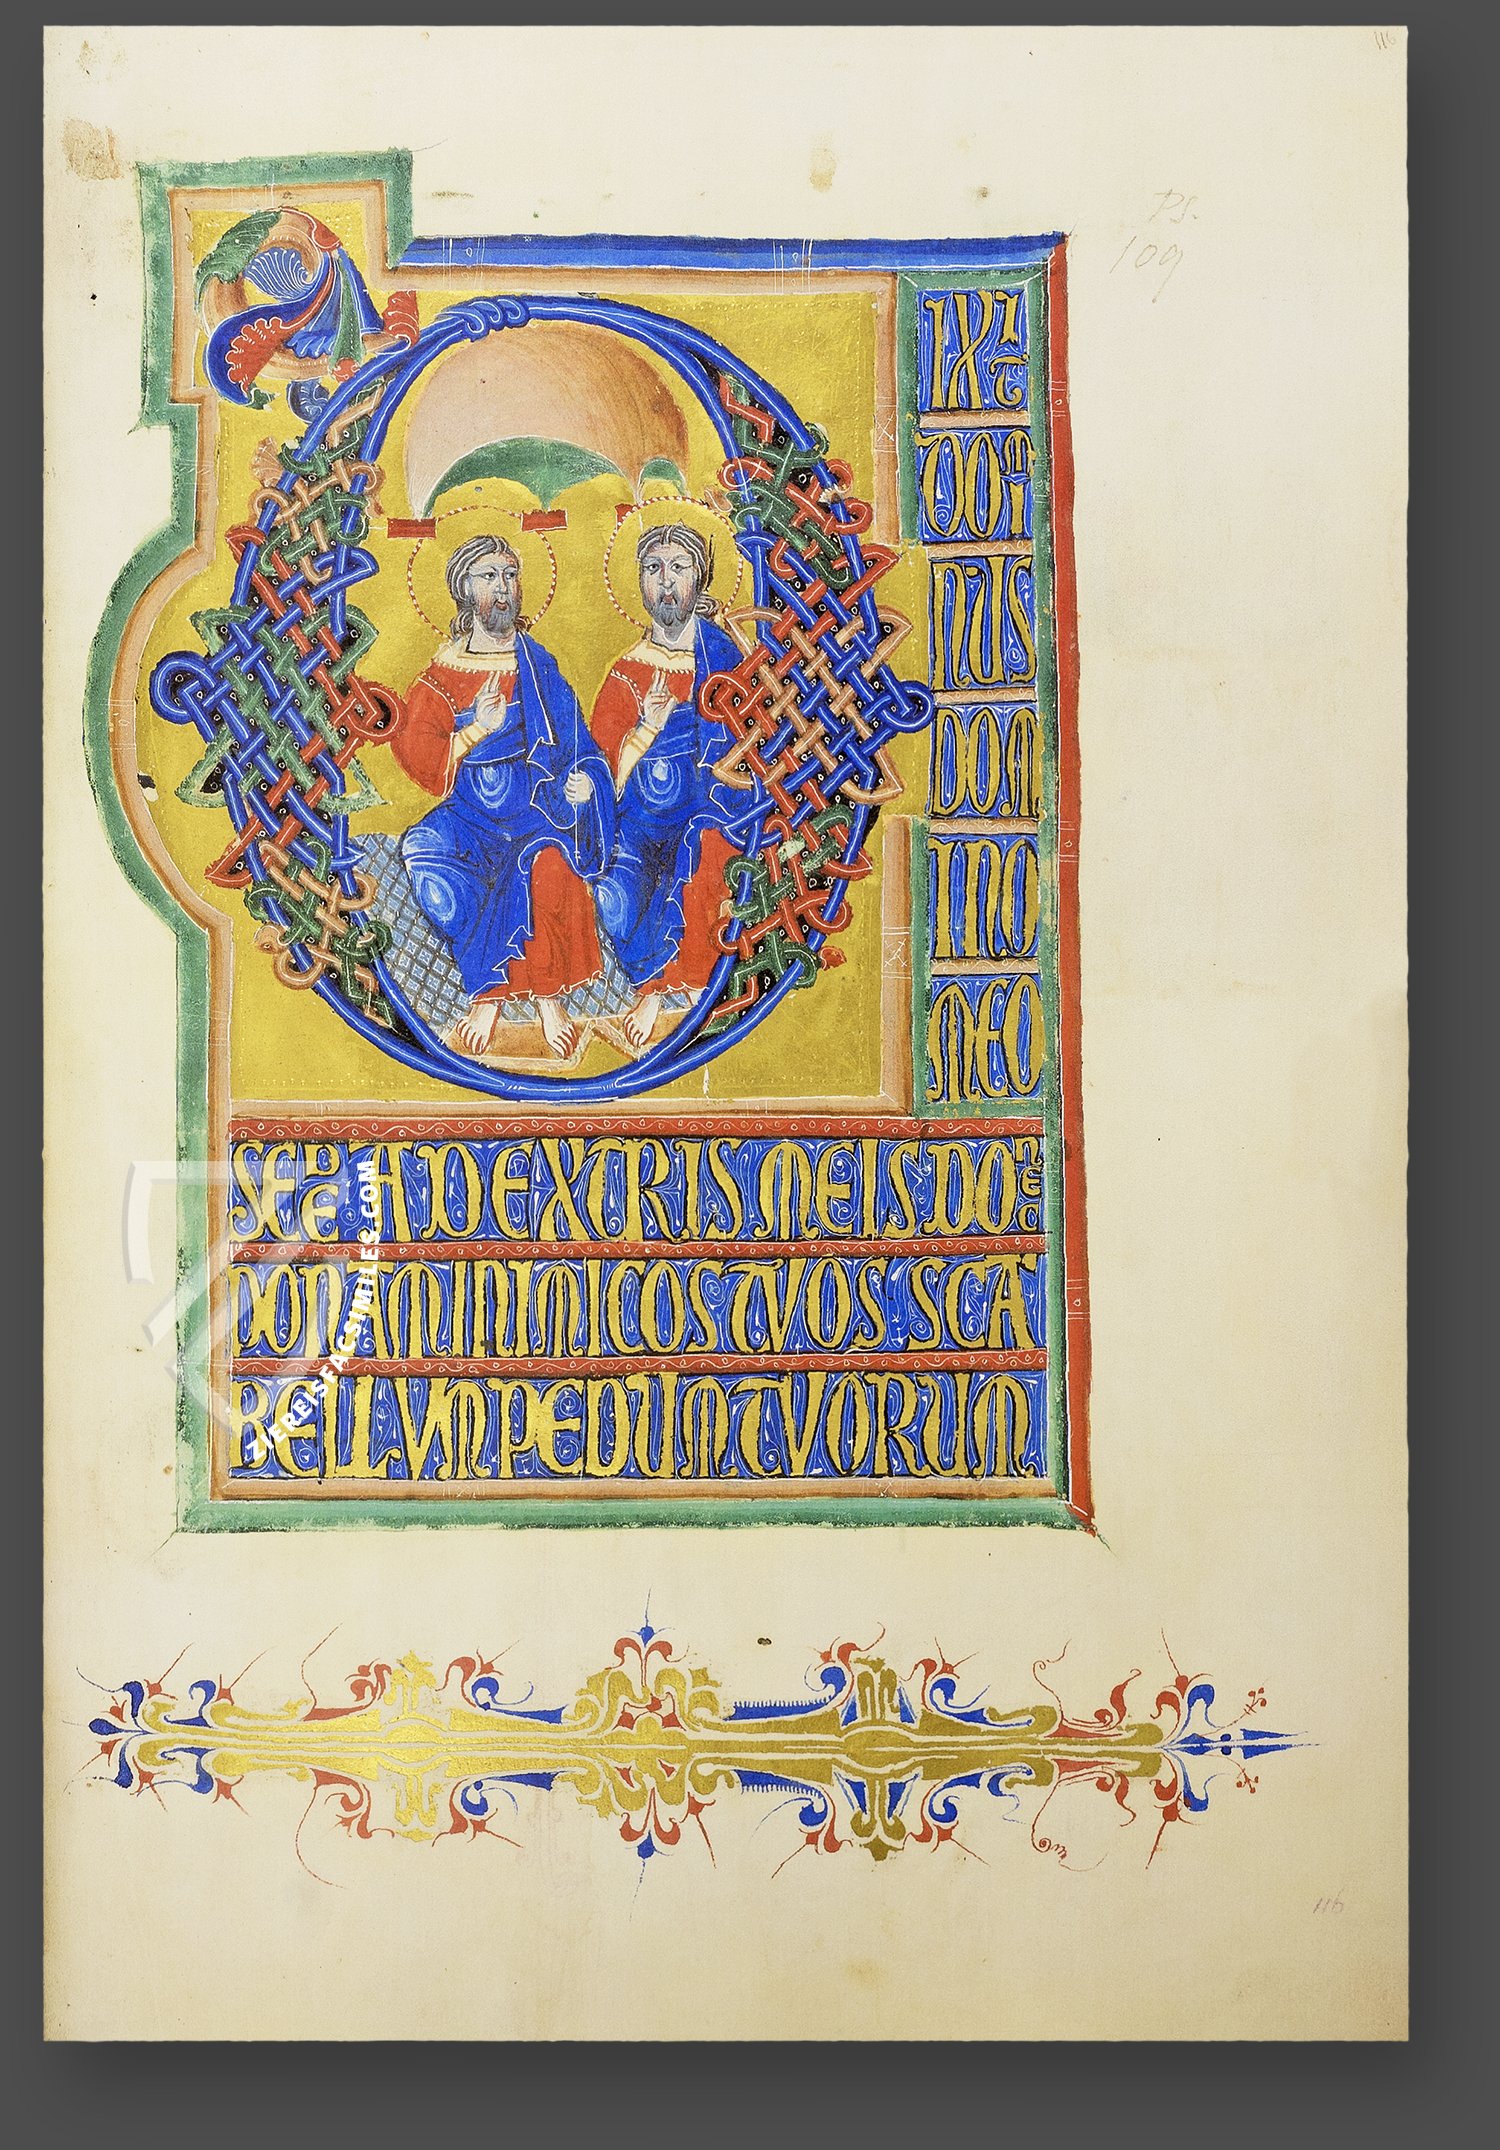 116
Ps.
109
IXIT
DOMI
NUS
DOM
INO
MEO
SEDE A DEXTRIS MEIS DONEC
PONAM INIMICOS TUOS SCA
BELLUM PEDUM TUORUM
ZIEREISFACSIMILES.COM
116